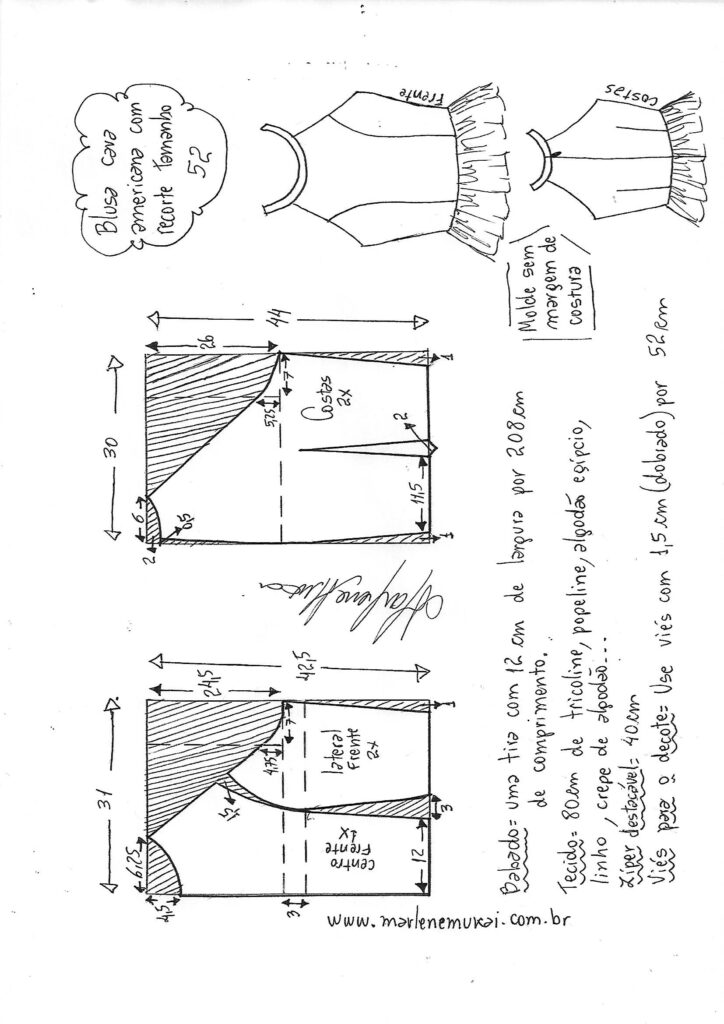 Blusa cava
americana com
recorte tamanho
52
Frente
costas
Molde sem
margem de
costura
30
44
26
6
2
0,5
5,25
7
Costas
2x
2
11,5
1
1
31
42,5
24,5
6,25
4,5
4,75
7
1,5
lateral
Frente
2x
centro
Frente
1x
3
12
3
1
www.marlenemukai.com.br
Babado= uma tira com 12 cm de largura por 208cm
de comprimento.
Tecido= 80cm de tricoline, popeline, algodão egípcio,
linho, crepe de algodão...
Zíper destacável= 40cm
Viés para o decote= Use viés com 1,5cm (dobrado) por 52cm